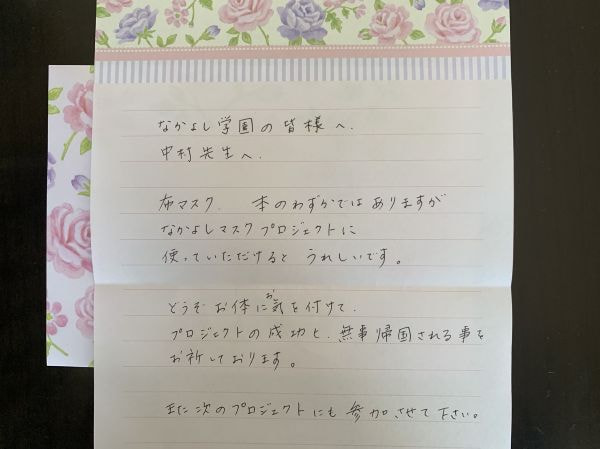 なかよし学園の皆様へ.
中村先生へ.
布マスク. 本のわずかではありますが
なかよしマスクプロジェクトに
使っていただけると うれしいです。
どうぞ お体にお気を付けて.
プロジェクトの成功と、無事帰国される事を
お祈しております。
また次のプロジェクトにも 参加させて下さい。